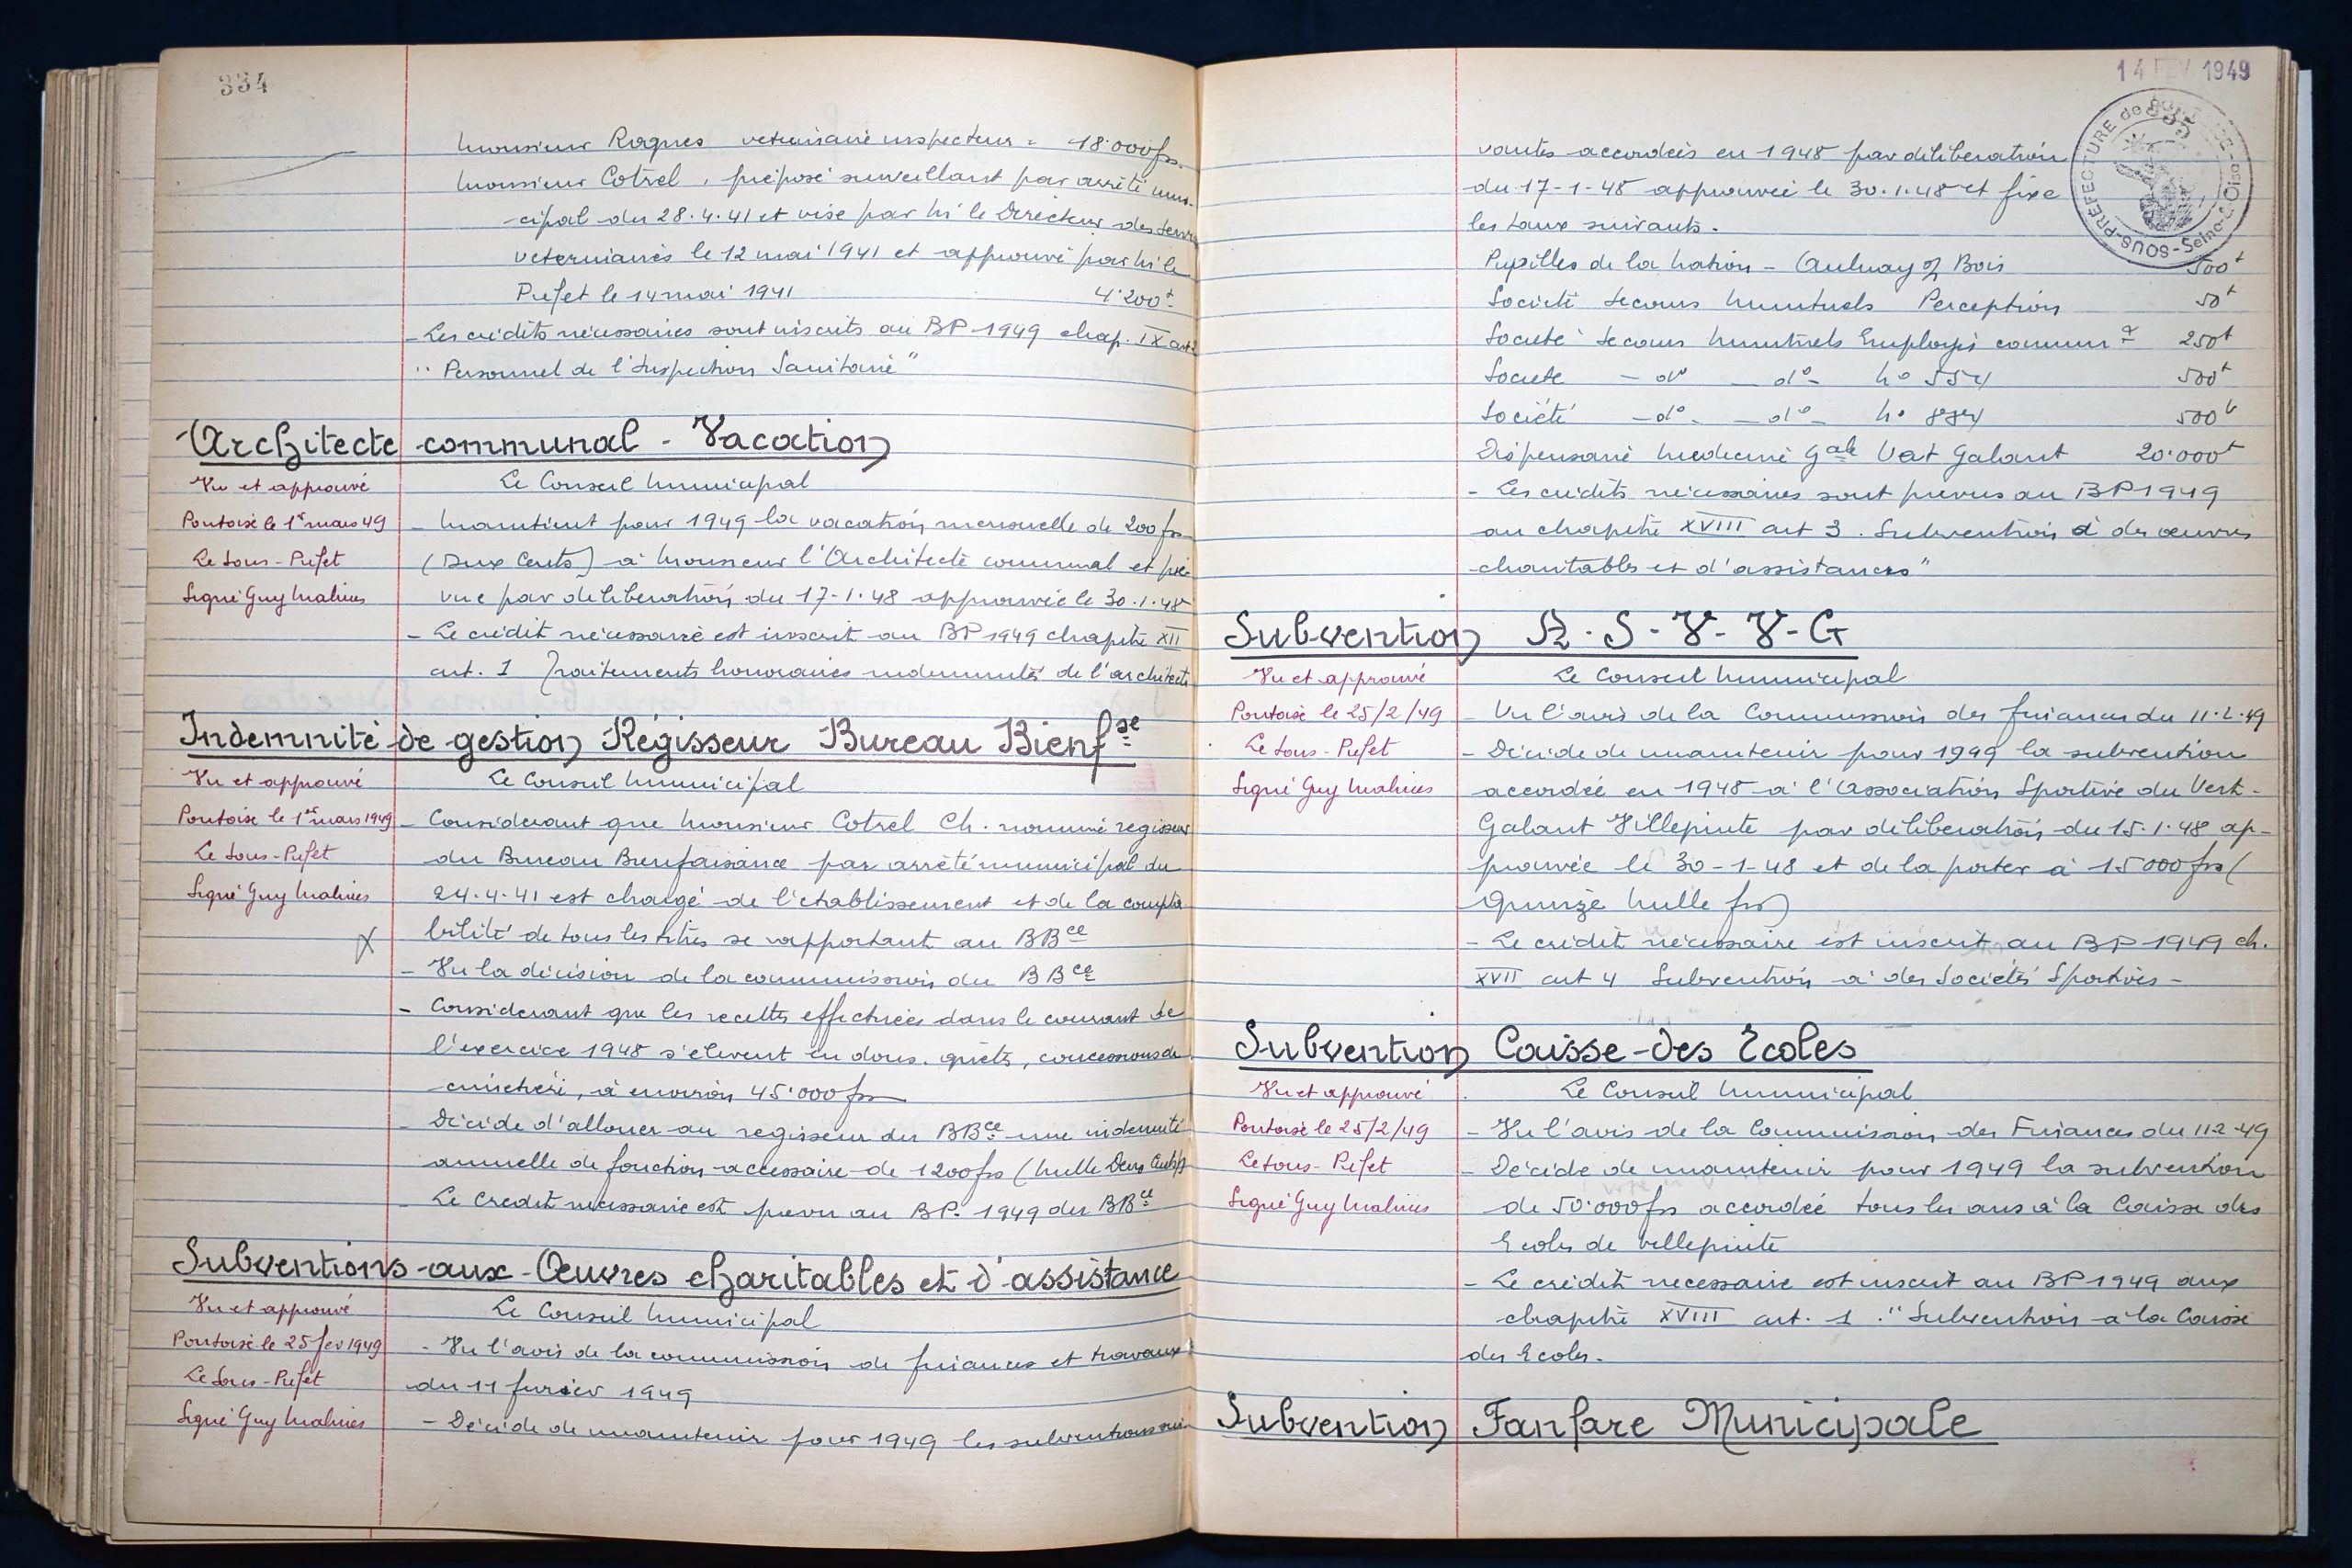 334
Monsieur Roques veterinaire inspecteur = 18.000 frs
Monsieur Cotrel, préposé surveillant par arrêté muni-
-cipal du 28.4.41 et visé par Mr le Directeur des Serv
veterinaires le 12 mai 1941 et approuvé par Mr le
Prefet le 14 mai 1941 4.200f
- Les crédits nécessaires sont inscrits au BP 1949 chap. IX art
" Personnel de l'Inspection Sanitaire"
Architecte communal - Vacation
Vu et approuvé
Pontoise le 1er mars 49
Le Sous-Prefet
Signé Guy Malines
Le Conseil Municipal
- Maintient pour 1949 la vacation mensuelle de 200 frs
(Deux Cents) à Monsieur l'Architecte communal et pré
vue par deliberation du 17-1.48 approuvée le 30.1.48
- Le crédit nécessaire est inscrit au BP 1949 chapitre XII
art. 1 Traitements honoraires indemnités de l'architecte
Indemnité de gestion Régisseur Bureau Bienfse
Vu et approuvé
Pontoise le 1er mars 1949
Le Sous-Prefet
Signé Guy Malines
Le Conseil Municipal
- Considerant que Monsieur Cotrel Ch. nommé regisseur
du Bureau Bienfaisance par arrêté municipal du
24.4.41 est chargé de l'etablissement et de la compta
bilité de tous les titres se rapportant au BBce
- Vu la décision de la commission du BBce
- Considerant que les recettes effectuées dans le courant de
l'exercice 1948 s'elevent en dons. quêtes, concessions de
cimetière, à environ 45.000 frs
- Décide d'allouer au regisseur du BBce une indemnité
annuelle de fonction accessoire de 1200 frs (Mille Deux Cents f)
- Le Credit necessaire est prevu au BP. 1949 du BBce
Subventions aux Œuvres charitables et d'assistance
Vu et approuvé
Pontoise le 25 fev 1949
Le Sous-Prefet
Signé Guy Malines
Le Conseil Municipal
- Vu l'avis de la commission de finances et travaux
du 11 fevrier 1949
- Décide de maintenir pour 1949 les subventions sui-
14 FEV 1949
335
SOUS-PRÉFECTURE de PONTOISE Seine-&-Oise
vantes accordées en 1948 par déliberation
du 17-1-48 approuvée le 30.1.48 et fixe
les taux suivants.
Pupilles de la Nation - Aulnay s/ Bois 500f
Societé Secours Mumtuels Perception 50f
Societé Secours Mumtuels Employés commux 250f
Societe - do - do - No 554 500f
Société - do - - do - No 884 500f
Dispensaire Medecine Gale Vert Galant 20.000f
- Les crédits nécessaires sont prevus au BP 1949
au chapitre XVIII art 3. Subventions à des œuvres
charitables et d'assistances"
Subvention A.S-V-V-G
Vu et approuvé
Pontoise le 25/2/49
Le Sous-Prefet
Signé Guy Malines
Le Conseil Municipal
- Vu l'avis de la Commission des finances du 11.2.49
- Décide de maintenir pour 1949 la subvention
accordée en 1948 à l'Association Sportive du Vert-
Galant Villepinte par deliberation du 15.1.48 ap-
prouvée le 30-1-48 et de la porter à 15000 frs (
Quinze Mille frs)
- Le crédit nécessaire est inscrit au BP 1949 ch.
XVII art 4 Subvention à des Societés Sportives -
Subvention Caisse des Ecoles
Vu et approuvé
Pontoise le 25/2/49
Le Sous-Prefet
Signé Guy Malines
Le Conseil Municipal
- Vu l'avis de la Commission des Finances du 11-2-49
- Décide de maintenir pour 1949 la subvention
de 50.000 frs accordée tous les ans à la Caisse des
Ecoles de Villepinte
- Le crédit necessaire est inscrit au BP 1949 aux
chapitre XVIII art. 1. "Subvention à la Caisse
des Ecoles.
Subvention Fanfare Municipale